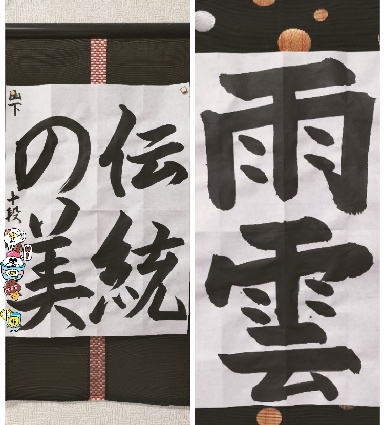 伝統
の美
十段
山下
雨雲